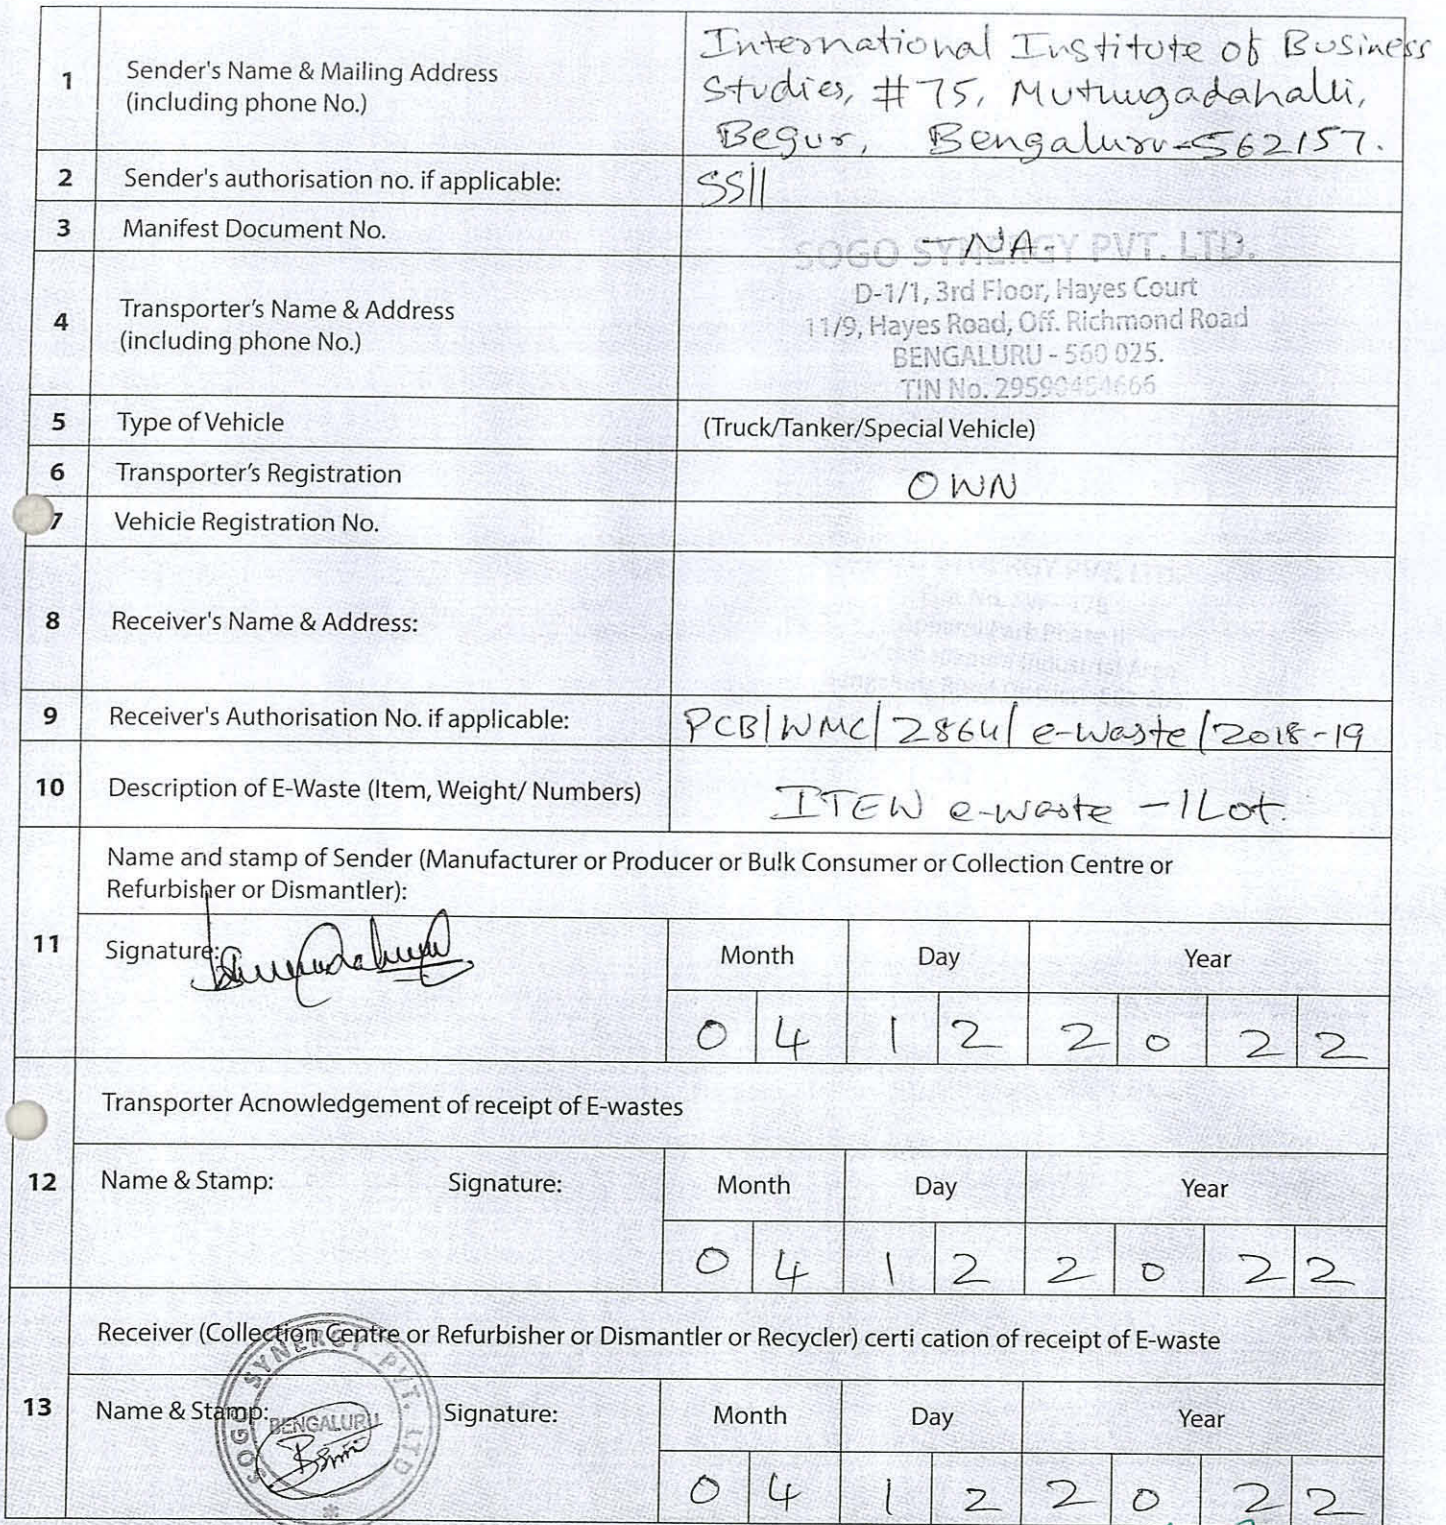 1
Sender's Name & Mailing Address
(including phone No.)
International Institute of Business
Studies, #75, Mutuugadahalli,
Begur, Bengaluru-562157.
2
Sender's authorisation no. if applicable:
3
Manifest Document No.
-NA-
4
Transporter's Name & Address
(including phone No.)
SOGO SYNERGY PVT. LTD.
D-1/1, 3rd Floor, Hayes Court
11/9, Hayes Road, Off. Richmond Road
BENGALURU - 560 025.
TIN No. 29590454666
5
Type of Vehicle
(Truck/Tanker/Special Vehicle)
6
Transporter's Registration
OWN
7
Vehicle Registration No.
8
Receiver's Name & Address:
SYNERGY PVT. LTD.
Industrial Area
9
Receiver's Authorisation No. if applicable:
PCB/WMC/2864/e-waste/2018-19
10
Description of E-Waste (Item, Weight/ Numbers)
ITEW e-waste -1Lot.
11
Name and stamp of Sender (Manufacturer or Producer or Bulk Consumer or Collection Centre or
Refurbisher or Dismantler):
Signature:
Month Day Year
0 4 1 2 2 0 2 2
12
Transporter Acnowledgement of receipt of E-wastes
Name & Stamp: Signature:
Month Day Year
0 4 1 2 2 0 2 2
13
Receiver (Collection Centre or Refurbisher or Dismantler or Recycler) certi cation of receipt of E-waste
Name & Stamp: Signature:
SOGO SYNERGY PVT. LTD
BENGALURU
Month Day Year
0 4 1 2 2 0 2 2